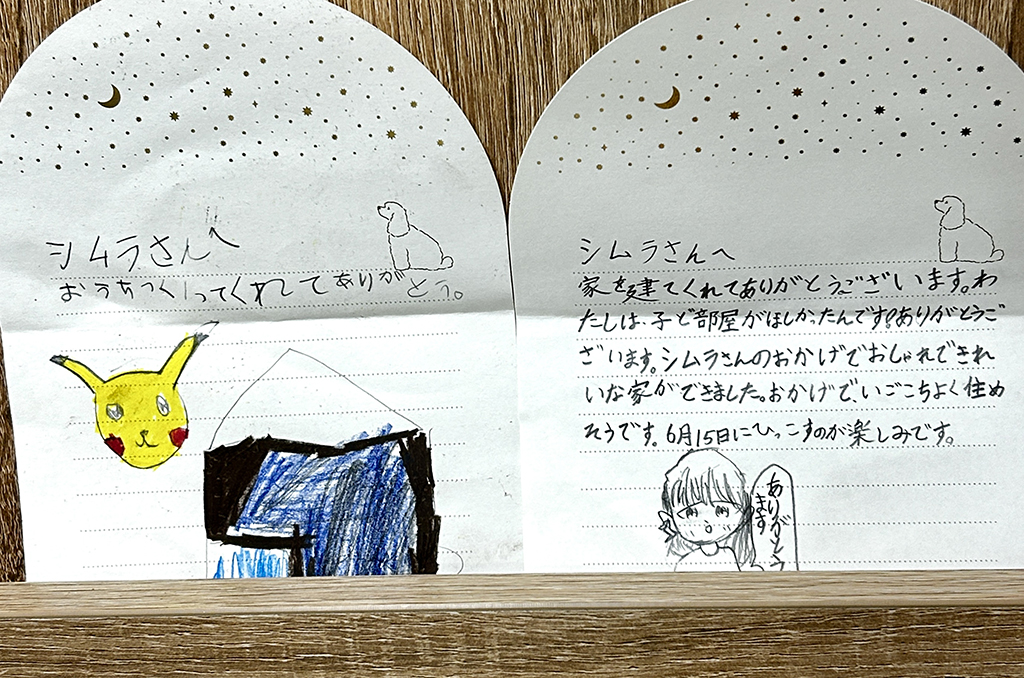 シムラさんへ
おうちつくってくれてありがとう。
シムラさんへ
家を建てくれてありがとうございます。わ
たしは、子ども部屋がほしかったんです!ありがとうご
ざいます。シムラさんのおかげでおしゃれできれ
いな家ができました。おかげで、いごこちよく住め
そうです。6月15日にひっこすのが楽しみです。
ありがとうござい
ます